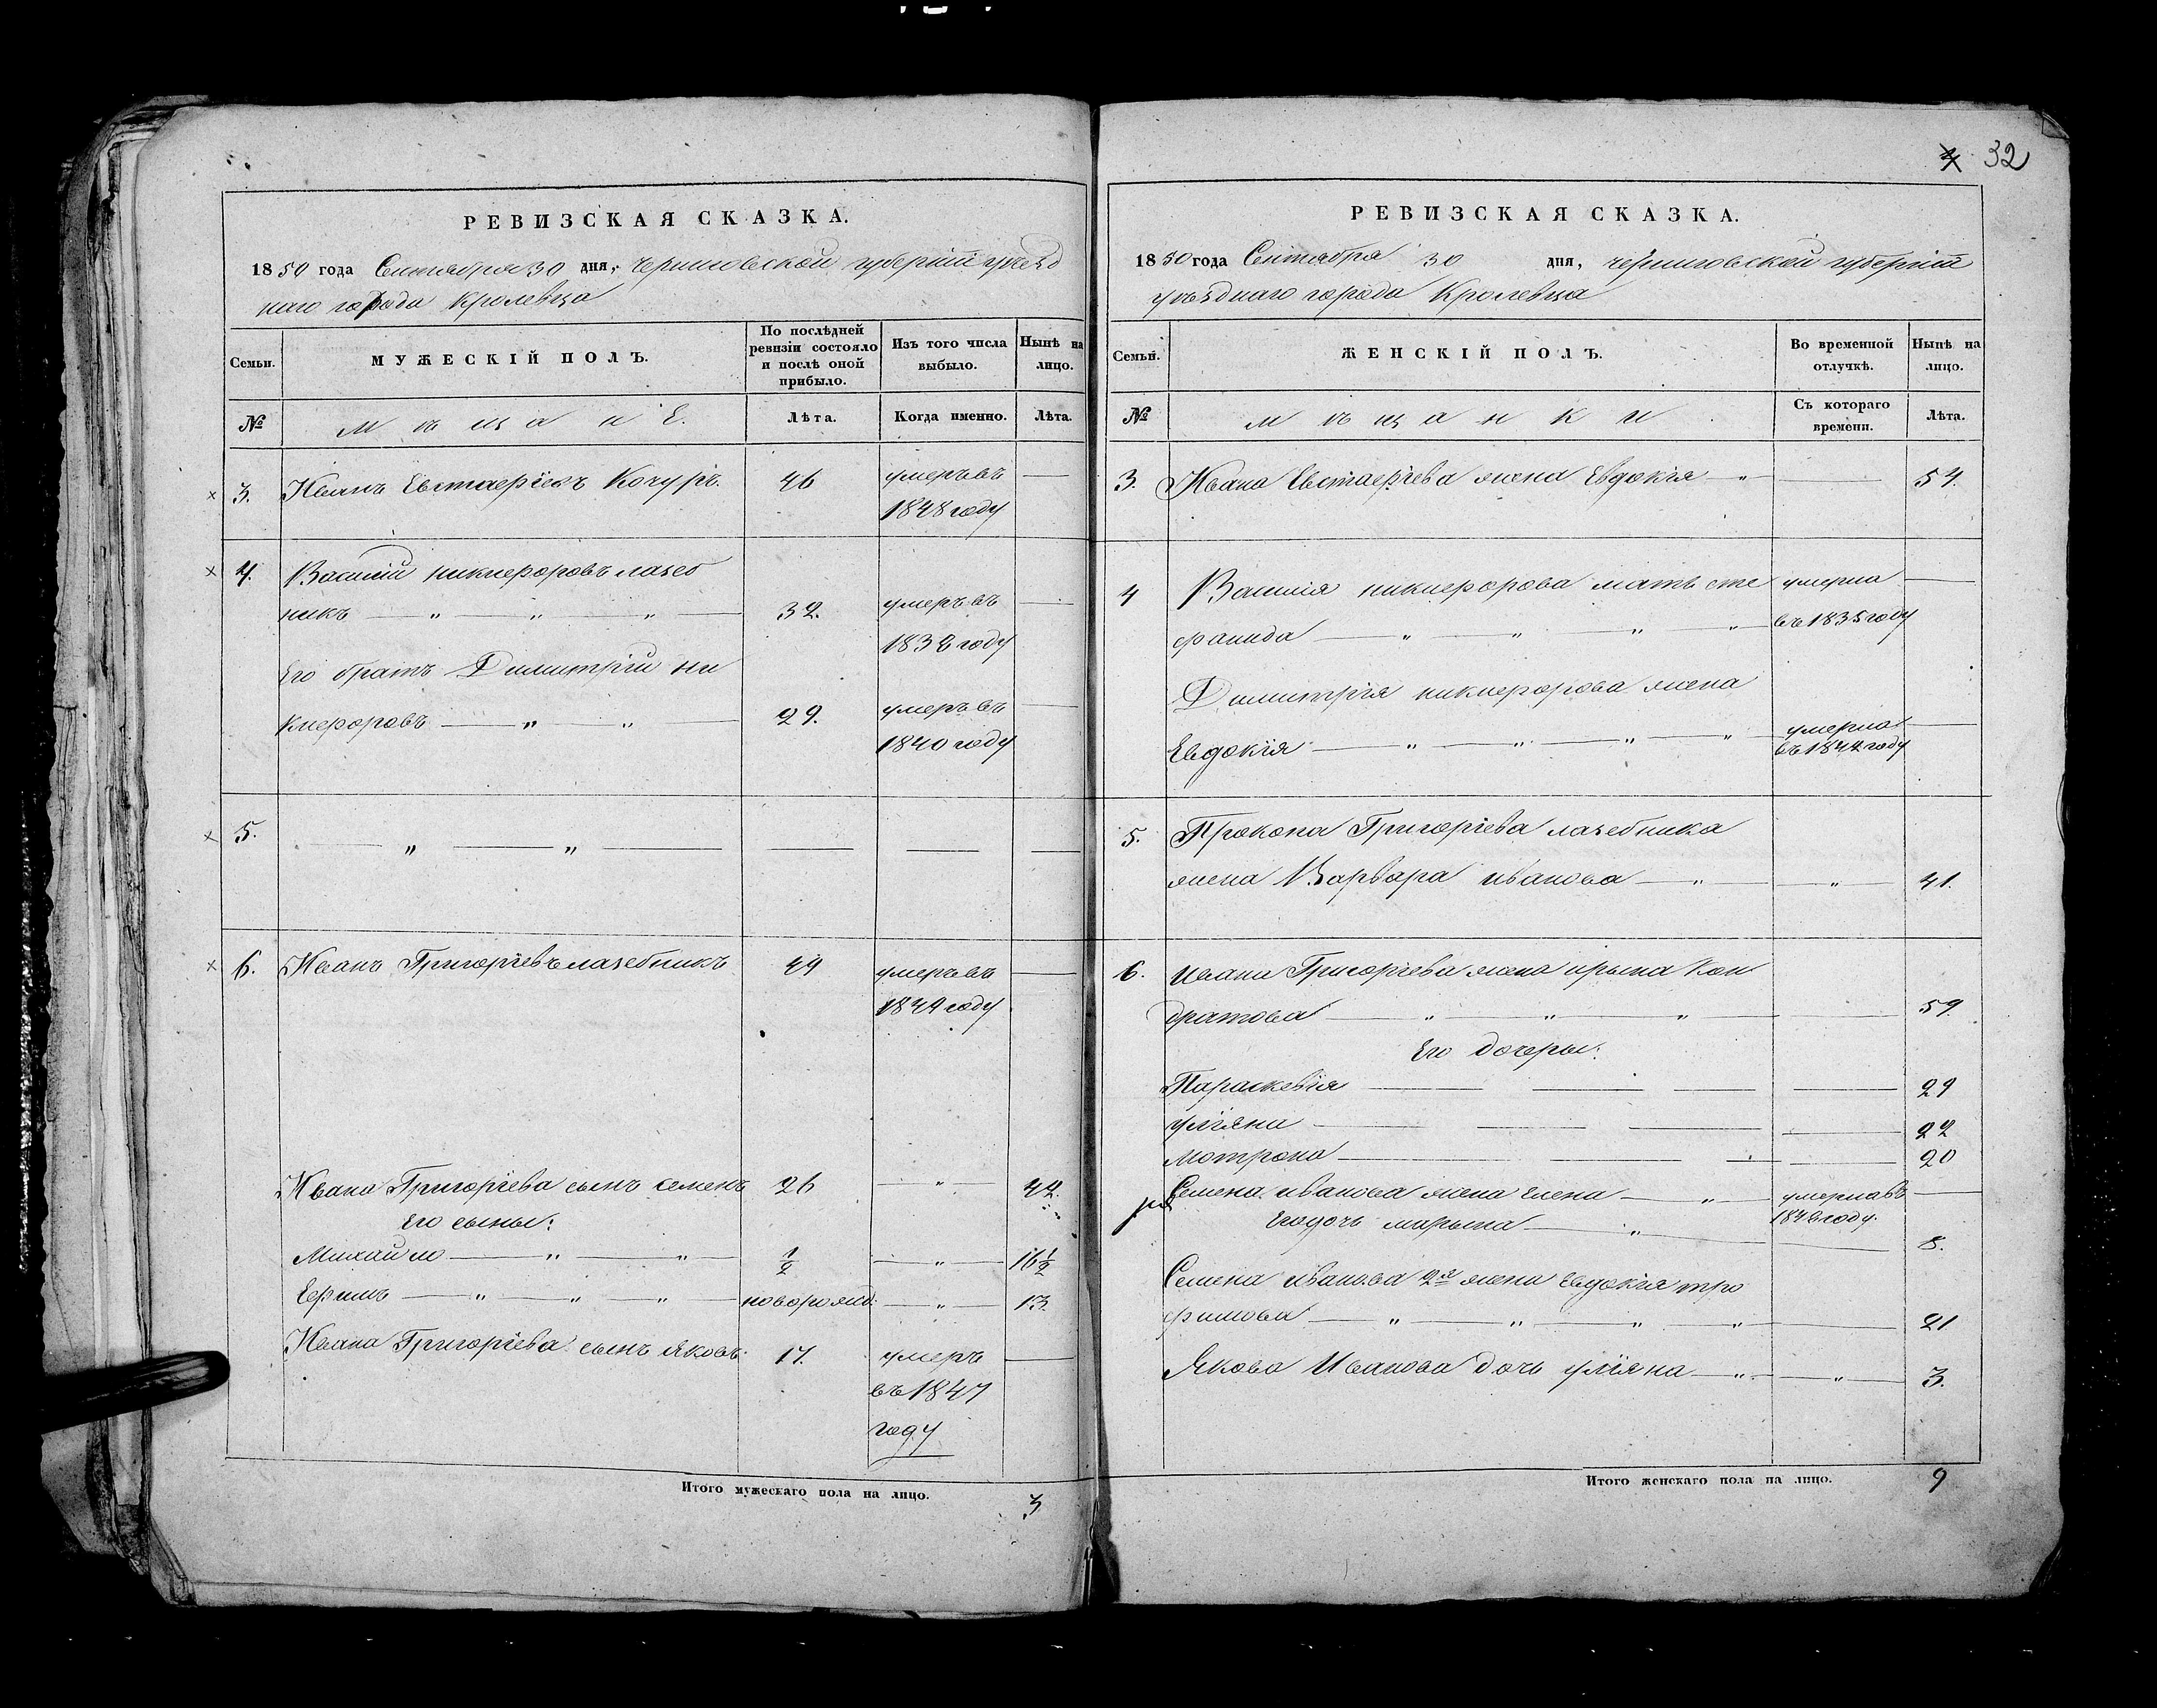 32
РЕВИЗСКАЯ СКАЗКА.
1850 года Сентября 30 дня, Черниговской губерніи уѣзд
наго города Кролевца
Семьи.
МУЖЕСКІЙ ПОЛЪ.
По послѣдней ревизіи состояло и послѣ оной прибыло.
Изъ того числа выбыло.
Нынѣ на лицо.
№
Мѣщане.
Лѣта.
Когда именно.
Лѣта.
3. Иванъ Евстаѳіевъ Кочуръ 46 умеръ въ —
1848 году
4. Василій никифоровъ лазеб
никъ — „ — „ — „ — 32. умеръ въ —
1838 году
Его братъ Димитрій ни
кифоровъ — „ — „ — 29. умеръ въ —
1840 году
5. — „ — „ — — — —
6. Иванъ Григоріевъ лазебникъ 49 умеръ въ —
1849 году
Ивана Григоріева сынъ семенъ 26 — „ — 42.
Его сыны:
Михайло — „ — „ — 1/2 — „ — 16 1/2
Ефимъ — „ — „ — „ — новорожд: — „ — 13.
Ивана Григоріева сынъ яковъ 17. умеръ —
въ 1847
году
Итого мужескаго пола на лицо. 3
РЕВИЗСКАЯ СКАЗКА.
1850 года Сентября 30 дня, черниговской губерніи
уѣзднаго города Кролевца
Семьи.
ЖЕНСКІЙ ПОЛЪ.
Во временной отлучкѣ.
Нынѣ на лицо.
№
мѣщанки.
Съ котораго времени.
Лѣта.
3. Ивана Евстаѳіева жена Евдокія — „ — — 54.
4 Василія никифорова мать сте умерла —
фанида — „ — „ — „ — „ — въ 1835 году
Димитрія никифорова жена
Евдокія — „ — „ — „ — „ — умерла —
въ 1844 году
5. Прокопа Григоріева лазебника
жена Варвара иванова — „ — „ — 41.
6. Ивана Григоріева жена ирына Кон
дратова — „ — „ — „ — 59.
Его дочеры:
Параскевія — — — — 29
уліяна — — — — 22
мотрона — — — — 20
Семена иванова жена Елена — „ — умерла въ —
Его дочь марына — „ — 184 году.
8.
Семена иванова 2я жена Евдокія тро
фимова — „ — „ — „ — „ — 21
Якова Иванова дочь уліяна — „ — „ — 3.
Итого женскаго пола на лицо. 9